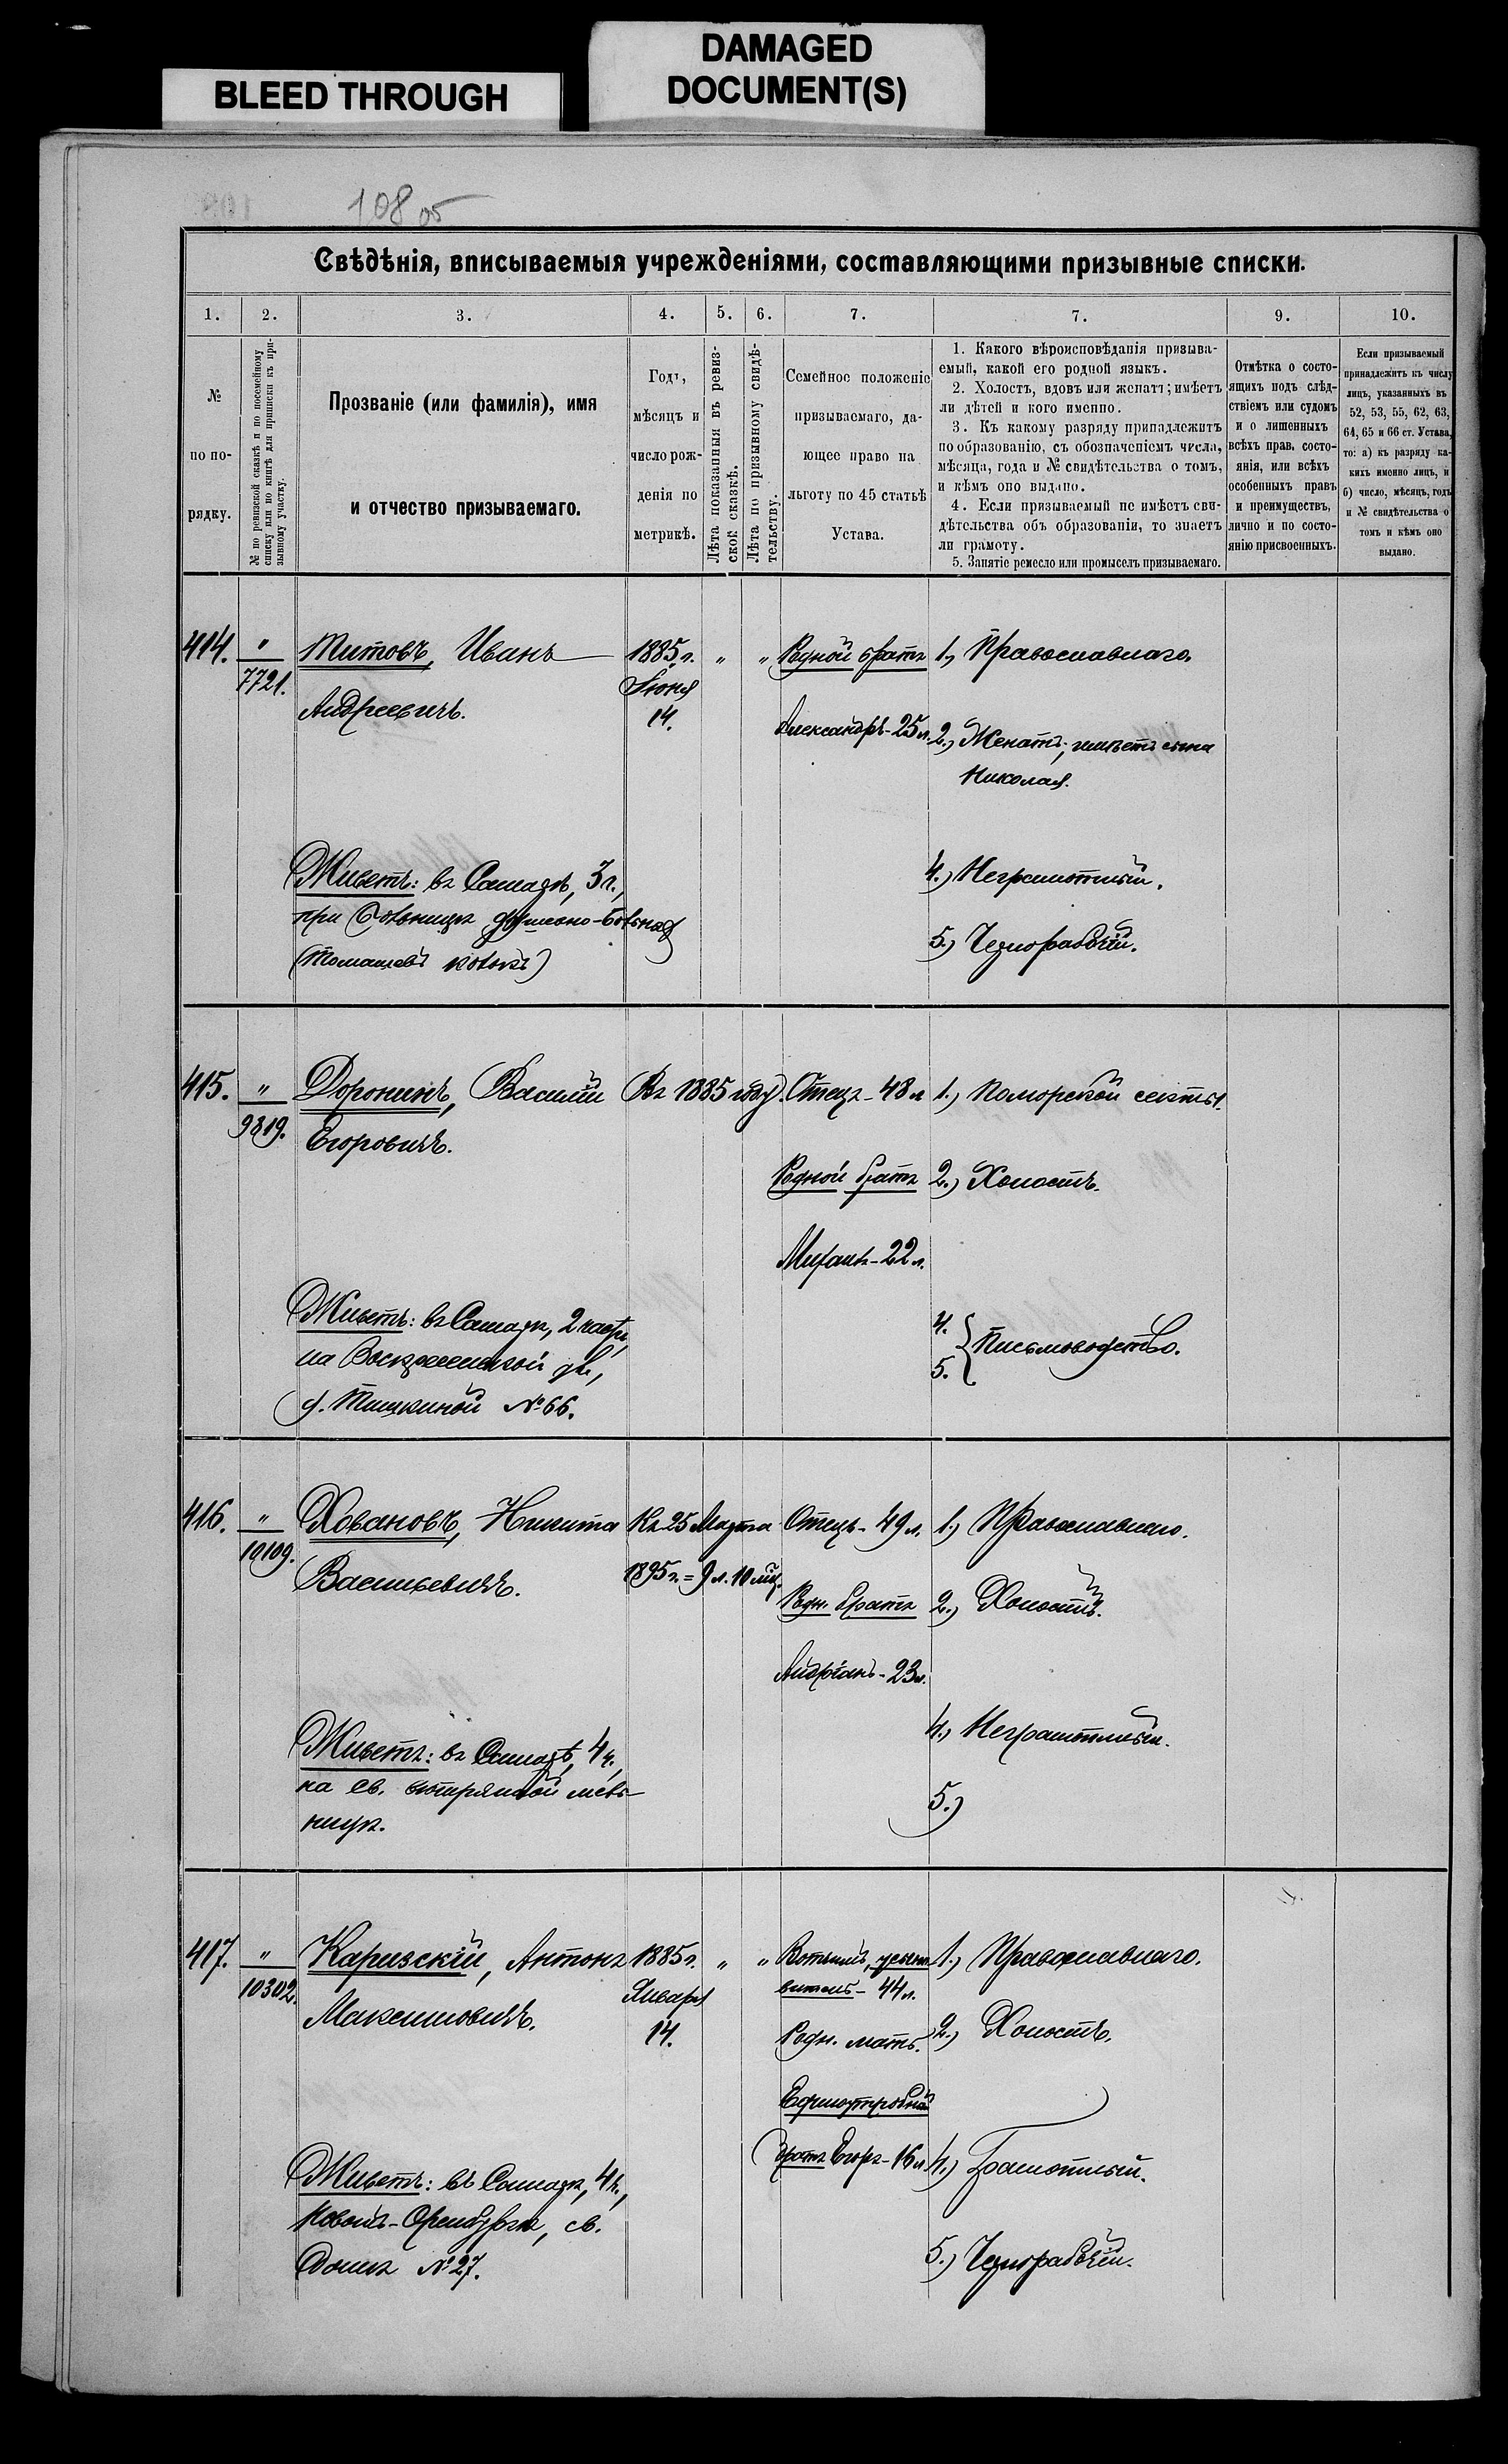 BLEED THROUGH
DAMAGED
DOCUMENT(S)
108 об
Свѣдѣнія, вписываемыя учрежденіями, составляющими призывные списки.
1. 2. 3. 4. 5. 6. 7. 7. 9. 10.
№
по по-
рядку.
№ по ревизской сказкѣ и по посемейному
списку или по книгѣ для приписки къ при-
зывному участку.
Прозваніе (или фамилія), имя
и отчество призываемаго.
Годъ,
мѣсяцъ и
число рож-
денія по
метрикѣ.
Лѣта показанныя въ ревиз-
ской сказкѣ.
Лѣта по призывному свидѣ-
тельству.
Семейное положеніе
призываемаго, да-
ющее право на
льготу по 45 статьѣ
Устава.
1. Какого вѣроисповѣданія призыва-
емый, какой его родной языкъ.
2. Холостъ, вдовъ или женатъ; имѣетъ
ли дѣтей и кого именно.
3. Къ какому разряду принадлежитъ
по образованію, съ обозначеніемъ числа,
мѣсяца, года и № свидѣтельства о томъ,
и кѣмъ оно выдано.
4. Если призываемый не имѣетъ сви-
дѣтельства объ образованіи, то знаетъ
ли грамоту.
5. Занятіе ремесло или промыселъ призываемаго.
Отмѣтка о состо-
ящихъ подъ слѣд-
ствіемъ или судомъ
и о лишенныхъ
всѣхъ прав, состо-
янія, или всѣхъ
особенныхъ правъ
и преимуществъ,
лично и по состо-
янію присвоенныхъ.
Если призываемый
принадлежитъ къ числу
лицъ, указанныхъ въ
52, 53, 55, 62, 63,
64, 65 и 66 ст. Устава,
то: а) къ разряду ка-
кихъ именно лицъ, и
б) число, мѣсяцъ, годъ
и № свидѣтельства о
томъ и кѣмъ оно
выдано.
414. " Титовъ, Иванъ 1885 г. " " Родной братъ 1., Православнаго.
7721. Андреевичъ. Іюня
14. Александръ - 25 л. 2., Женатъ; имѣетъ сына
Николая.
Живетъ: въ Самарѣ, 3 ч.,
при больницѣ душевно-больныхъ
(Томашевъ колокъ)
4.) Неграмотный.
5.) Чернорабочій.
415. " Доронинъ, Василій Въ 1885 году. Отецъ - 48 л. 1.) Поморской секты.
9819. Егоровичъ.
Родной братъ 2.) Холостъ.
Михаилъ - 22 л.
Живетъ: въ Самарѣ, 2 части,
на Воскресенской ул.,
д. Тишкиной № 66.
4.
5. Письмоводство.
416. " Ховановъ, Никита Къ 25 Марта Отецъ - 49 л. 1.) Православнаго.
10109. Васильевичъ. 1895 г. = 9 л. 10 мѣс.
Родн. братъ 2.) Холостъ.
Андріанъ - 23 л.
Живетъ: въ Самарѣ, 4 ч.,
на св. вѣтряной мель-
ницѣ.
4.) Неграмотный.
5.)
417. " Каризскій, Антонъ 1885 г. " " Вотчимъ, усыно- 1.) Православнаго.
10302. Максимовичъ. Января
витель - 44 л.
14. Родн. мать. 2.) Холостъ.
Единоутробный
братъ Егоръ - 16 л. 4.) Грамотный.
Живетъ: въ Самарѣ, 4 ч.,
Новомъ-Оренбургѣ, св.
домѣ № 27.
5.) Чернорабочій.